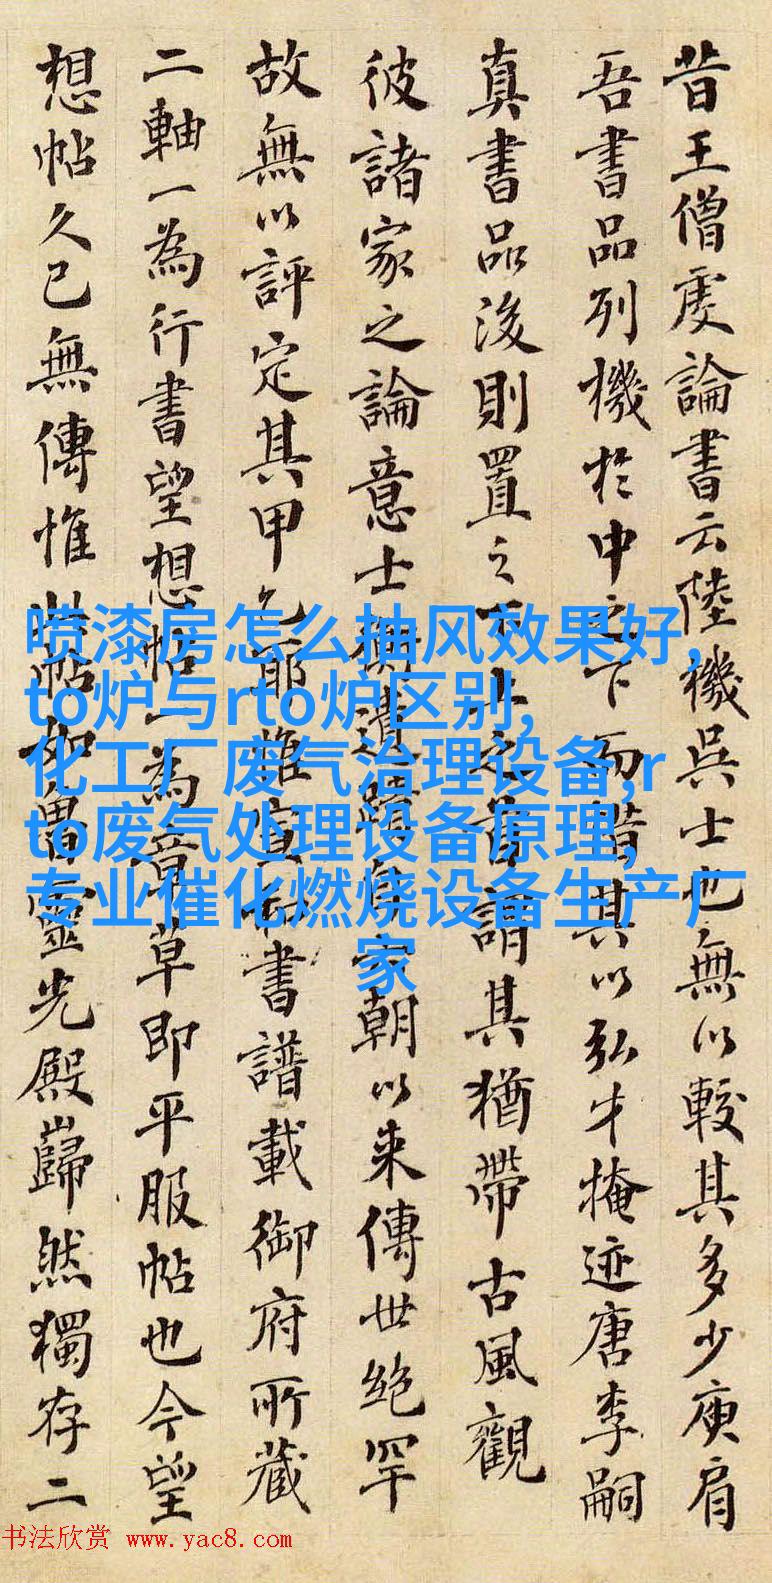 昔王僧虔論書云陸機吳士也無以較其多少庾肩
吾書品列機於中之下而惜其以弘才掩迹唐李嗣
真書品後則置之下上之首謂其猶帶古風觀
彼諸家之論意士衡遺蹟自宋朝以来傳世絶罕
故無以評定其甲乙耶惟宣和書譜載御府所藏
二軸一為行書望想帖一為章草即平服帖也今望
想帖久已無傳惟此帖如魯靈光殿巋然獨存二
喷漆房怎么抽风效果好,
to炉与rto炉区别,
化工厂废气治理设备,r
to废气处理设备原理,
专业催化燃烧设备生产厂
家
书法欣赏 www.yac8.com